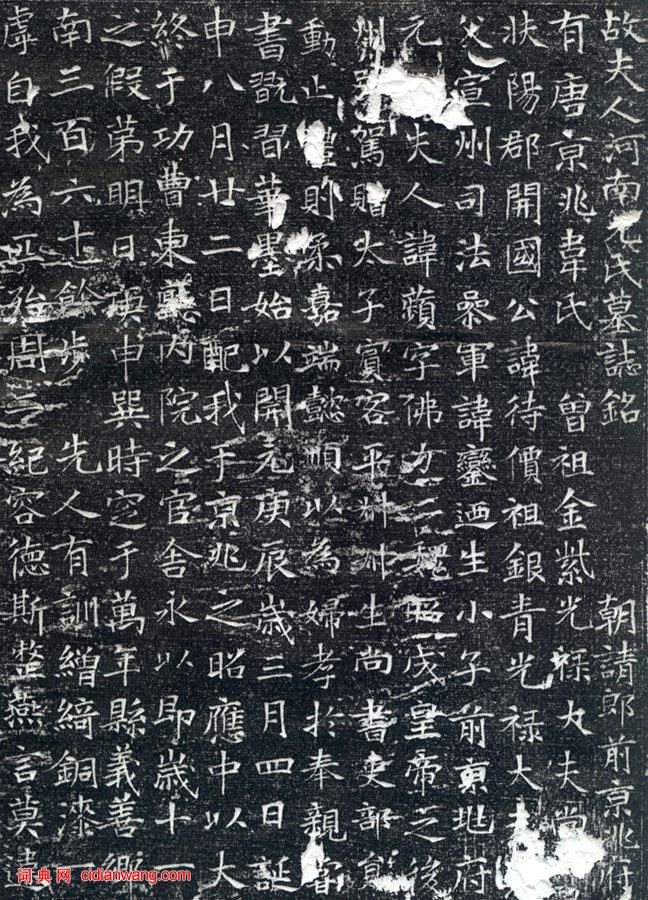 故夫人河南元氏墓誌銘 朝請郎前京兆府
有唐京兆韋氏 曾祖金紫光祿大夫尚
扶陽郡開國公諱待價祖銀青光祿大
父宣州司法叅軍諱鑾迺生小子前京兆府
元夫人諱蘋字佛力魏昭成皇帝之後
州駕贈太子賓客平州生尚書吏部
動止則柔嘉端懿順以為婦孝於奉親
書翫習華墨始以開元庚辰歲三月四日誕
申八月廿二日配我于京兆之昭應中以大
終于功曹東廳內院之官舍永以即歲十一
之假第明日庚申巽時窆于萬年縣義善鄉
南三百六十餘步 先人有訓繒綺銅漆一
虛自我為匹殆周二紀容德斯整燕言莫違
词典网 cidianwang.com